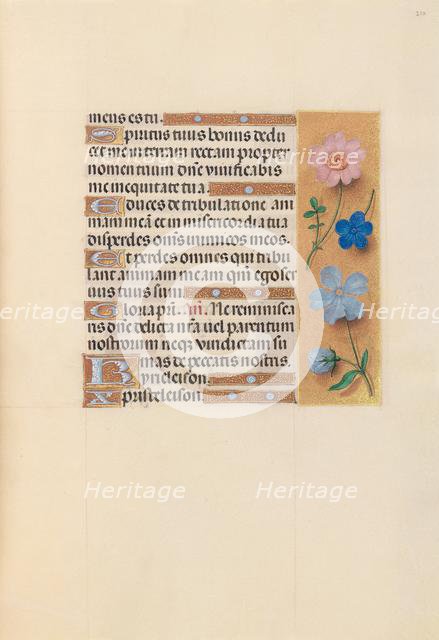 meus es tu
Spiritus tuus bonus dedu
cet me in terram rectam propter
nomen tuum dñe vivificabis
me in equitate tua
Educes de tribulatione ani
mam meã et in misericordia tua
disperdes oñs inimicos meos.
Et perdes omnes qui tribu
lant animam meam qm̃ ego ser
vus tuus sum
Gloria pri. añ. Ne reminisca
ris dñe delicta nr̃a vel parentum
nostrorum neque vindictam su
mas de peccatis nostris.
Kyrieleison.
Xpristeleison.
Heritage
Heritage
Heritage
Heritage
Heritage
Heritage